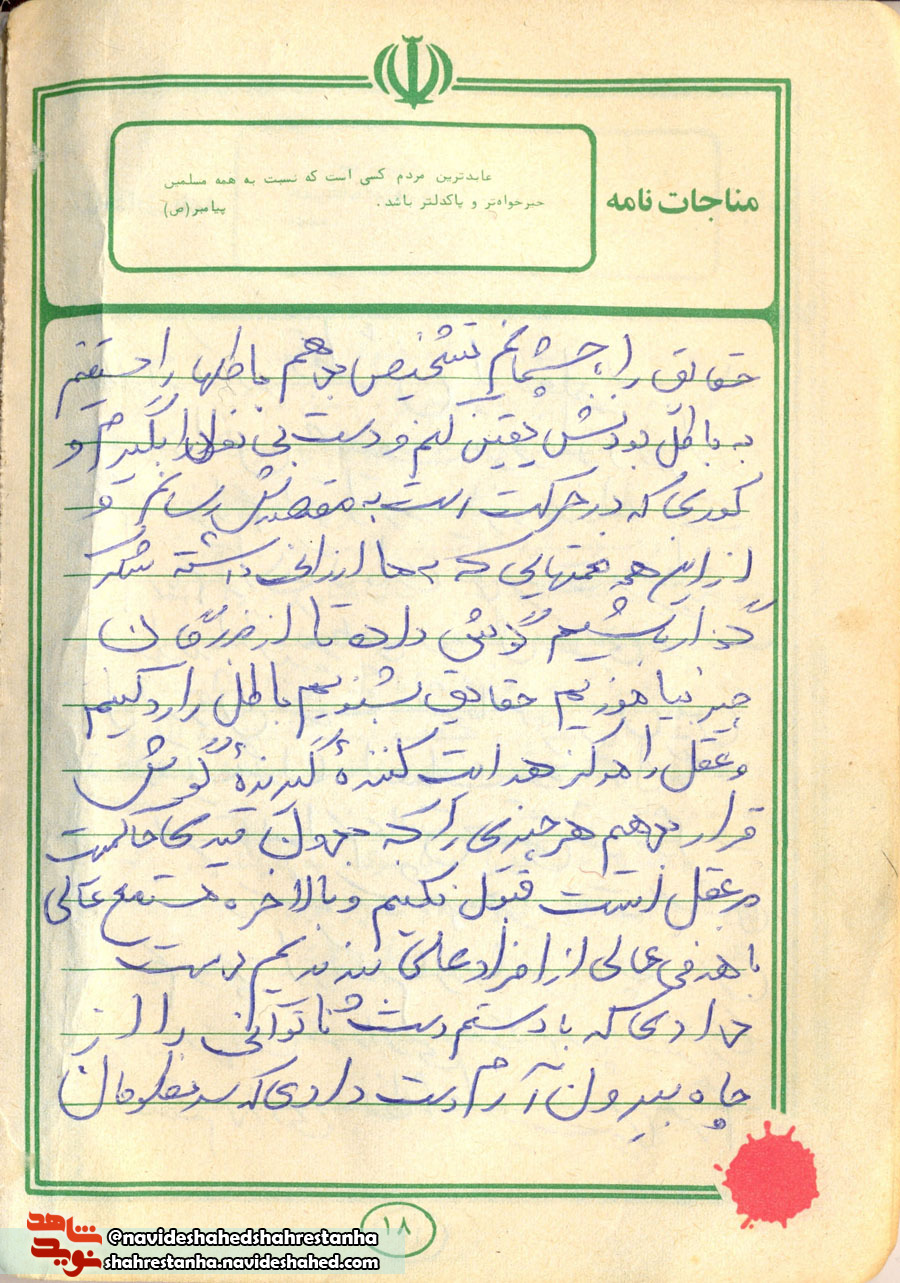 مناجات نامه
عابدترین مردم کسی است که نسبت به همه مسلمین
خیرخواه‌تر و پاکدلتر باشد. پیامبر(ص)
حقایق را با چشمانم تشخیص بدهم باطلها را مستقیم
به باطل بودنش یقین کنم و دست بی نوان را بگیرم و
کوری که در حرکت است به مقصدش رسانم و
از این همه نعمتهایی که به ما ارزانی داشته شکر
گزار باشیم گوش داده تا از بزرگان
چیز بیاموزیم حقایق بشنویم باطل را رد کنیم
و عقل را مرکز هدایت کنندهٔ گیرندهٔ گوش
قرار بدهم هر چیزی را که بدون قیدی حاکمیت
بر عقل است قبول نکنیم و بالاخره مستمع عالی
با هدفی عالی از افراد عالی پند بریم دست
دادی که با دستم دست ناتوانی را از
چاه بیرون آرم دست دادی که سر مظلومان
۱۸
شاهد
نوید
@navideshahedshahrestanha
shahrestanha.navideshahed.com